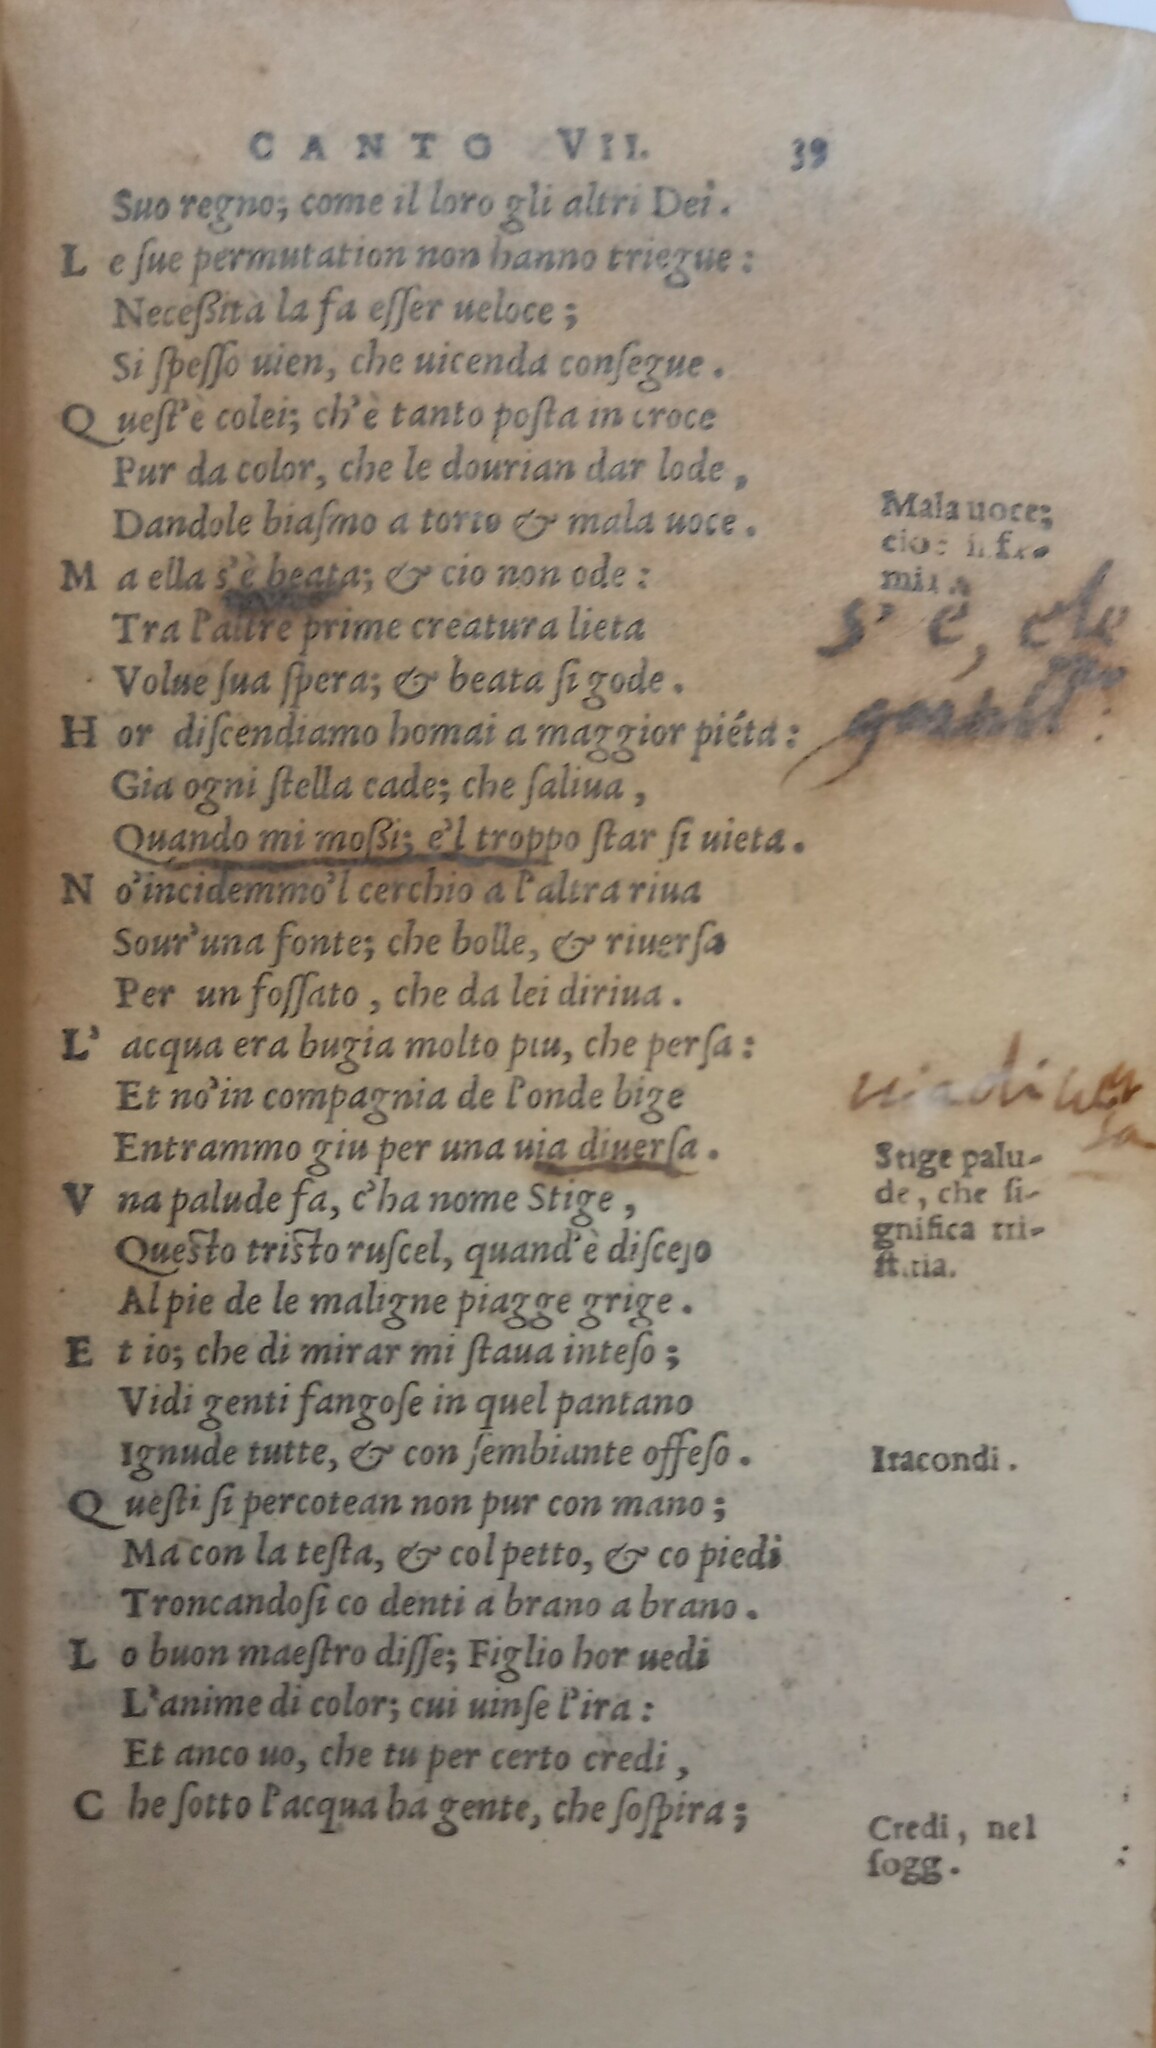 CANTO VII. 39
Suo regno; come il loro gli altri Dei.
L e ſue permutation non hanno triegue:
Neceßità la fa eſſer ueloce;
Si ſpeſſo uien, che uicenda conſegue.
Q ueſt'è colei; ch'è tanto poſta in croce
Pur da color, che le dourian dar lode,
Dandole biaſmo a torto & mala uoce.
Mala uoce;
cioè infa-
mia.
M a ella s'è beata; & cio non ode:
s'è, ele
Tra l'altre prime creatura lieta
Volue ſua ſpera; & beata ſi gode.
H or diſcendiamo homai a maggior piéta:
Gia ogni ſtella cade; che ſaliua,
Quando mi moßi; e'l troppo ſtar ſi uieta.
N o'incidemmo'l cerchio a l'altra riua
Sour'una fonte; che bolle, & riuerſa
Per un foſſato, che da lei diriua.
L' acqua era bugia molto piu, che perſa:
Et no'in compagnia de l'onde bige
uia diuer
sa
Entrammo giu per una uia diuerſa.
Stige palu-
de, che ſi-
gnifica tri-
ſtitia.
V na palude fa, c'ha nome Stige,
Queſto triſto ruſcel, quand'è diſceſo
Al pie de le maligne piagge grige.
E t io; che di mirar mi ſtaua inteſo;
Vidi genti fangoſe in quel pantano
Ignude tutte, & con ſembiante offeſo.
Iracondi.
Q ueſti ſi percotean non pur con mano;
Ma con la teſta, & col petto, & co piedi
Troncandoſi co denti a brano a brano.
L o buon maeſtro diſſe; Figlio hor uedi
L'anime di color; cui uinſe l'ira:
Et anco uo, che tu per certo credi,
C he ſotto l'acqua ha gente, che ſoſpira;
Credi, nel
ſogg.